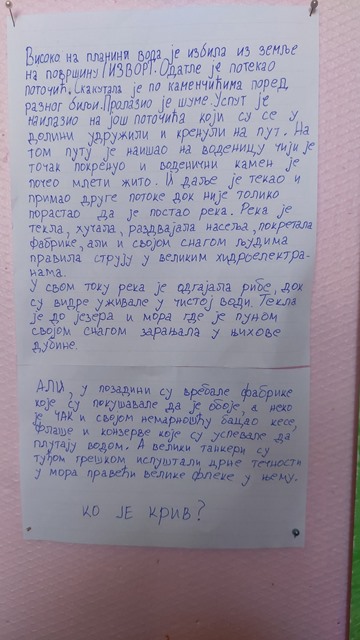 Високо на планини вода је избила из земље
на површину (ИЗВОР). Одатле је потекао
поточић. Скакутала је по каменчићима поред
разног биља. Пролазио је шуме. Успут је
наилазио на још поточића који су се у
долини удружили и кренули на пут. На
том путу је наишао на воденицу чији је
точак покренуо и воденични камен је
почео млети жито. И даље је текао и
примао друге потоке док није толико
порастао да је постао река. Река је
текла, хучала, раздвајала насеља, покретала
фабрике, али и својом снагом људима
правила струју у великим хидроелектра-
нама.
У свом току река је одгајала рибе, док
су видре уживале у чистој води. Текла
је до језера и мора где је пуном
својом снагом зарањала у њихове
дубине.
АЛИ, у позадини су вребале фабрике
које су покушавале да је обоје, а неко
је ЧАК и својом немарношћу бацао кесе,
флаше и конзерве које су успевале да
плутају водом. А велики танкери су
туђом грешком испуштали црне течности
у мора правећи велике флеке у њему.
КО ЈЕ КРИВ?